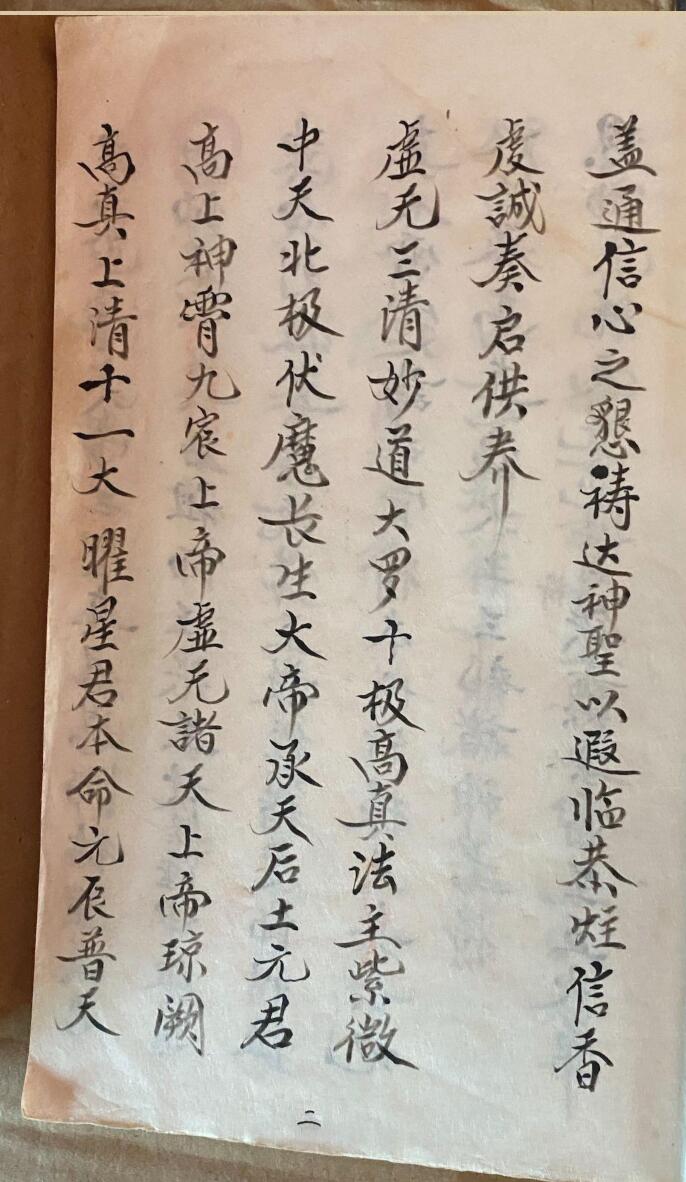 盖通信心之懇祷达神聖以遐临恭炷信香
虔誠奏启供养
虚无三清妙道大罗十极高真法主紫微
中天北极伏魔长生大帝承天后土元君
高上神霄九宸上帝虚无諸天上帝琼阙
高真上清十一大曜星君本命元辰普天
二